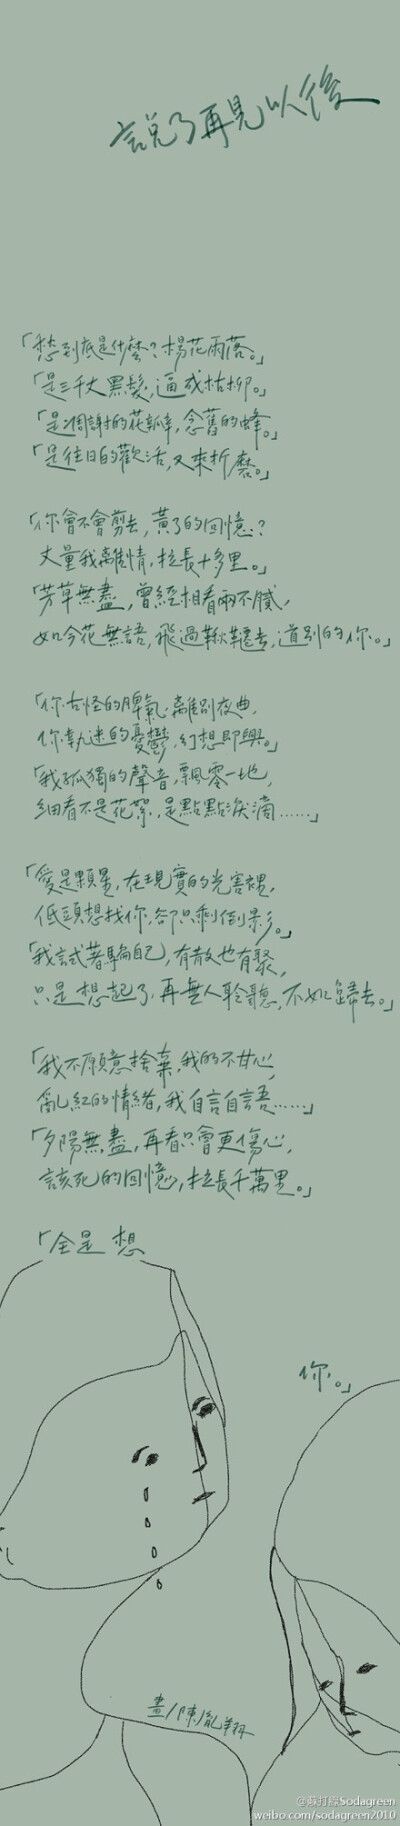 說了再見以後
「愁到底是什麼？楊花雨落。」
「是三千丈黑髮，逼成枯柳。」
「是凋謝的花瓣，念舊的蜂。」
「是往日的歡活，又來折磨。」
「你會不會剪去，黃了的回憶？
丈量我離情，拉長十多里。」
「芳草無盡，曾經相看兩不膩，
如今花無語，飛過鞦韆去，道別的你。」
「你古怪的脾氣，離別夜曲，
你執迷的憂鬱，幻想即興。」
「我孤獨的聲音，飄零一地，
細看不是花絮，是點點淚滴……」
「愛是顆星，在現實的光害裡，
低頭想找你，卻只剩倒影。」
「我試著騙自己，有散也有聚，
只是想起了，再無人聆聽，不如歸去。」
「我不願意捨棄，我的不甘心，
亂紅的情緒，我自言自語……」
「夕陽無盡，再看只會更傷心，
該死的回憶，拉長千萬里。」
「全是想
你。」
畫/陳胤翔
@蘇打綠Sodagreen
weibo.com/sodagreen2010